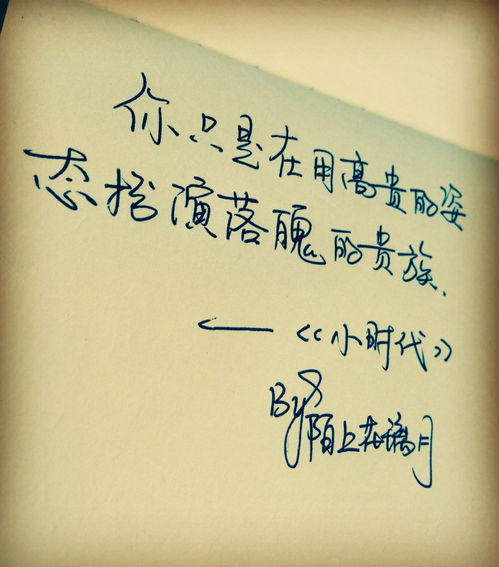 你只是在用高贵的姿
态扮演落魄的贵族.
——《小时代》
By 陌上月